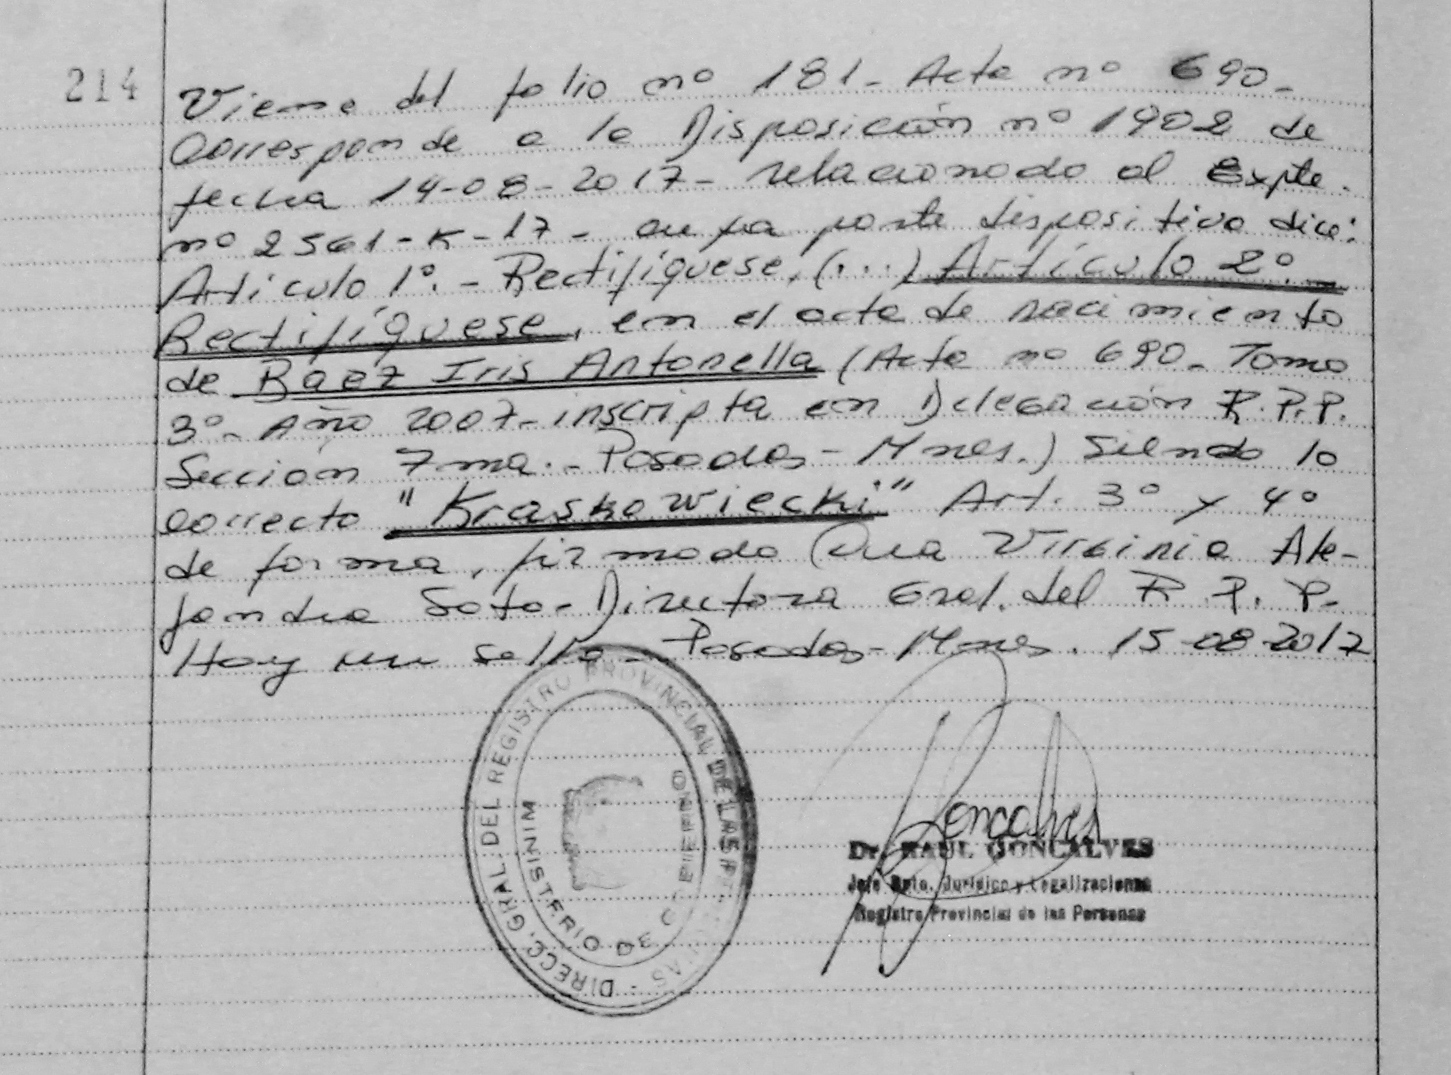 214
Viene del folio nº 181- Acta nº 690-
Corresponde a la Disposición nº 1902 de
fecha 14-08-2017- relacionado al Expte.
nº 2561-K-17- cuya parte dispositiva dice:
Artículo 1º.- Rectifíquese, (...) Artículo 2º-
Rectifíquese, en el acta de nacimiento
de Baez Iris Antonella (Acta nº 690- Tomo
3º- Año 2007- inscripta en Delegación R.P.P.
Sección 7ma.- Posadas- Mnes.) Siendo lo
correcto "Kraskowiecki" Art. 3º y 4º
de forma, firmado Virginia Ale-
jandra Soto- Directora Gral. del R.P.P.
Hay un sello- Posadas- Mnes. 15-08-2017
DIRECC. GRAL. DEL REGISTRO PROVINCIAL DE LAS
MINISTERIO DE GOBIERNO
Goncalves
Dr. RAUL GONCALVES
Jefe Dpto. Jurídico y Legalizaciones
Registro Provincial de las Personas